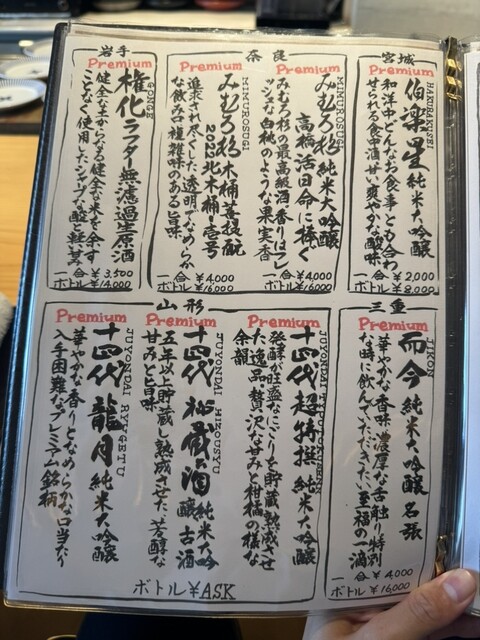 宮城
Premium
HAKURAKUSEI
伯楽星 純米大吟醸
和洋中どんなお食事とも合わ
せられる食中酒甘い爽やかな酸味
一合¥2,000
ボトル¥8,000
奈良
Premium
MIMUROSUGI
みむろ杉 純米大吟醸
高橋活日命に捧ぐ
みむろ杉の最高級酒香りはフレ
ッシュな白桃のような果実香
一合¥4,000
ボトル¥16,000
Premium
MIMUROSUGI
みむろ杉 木桶菩提酛
2022北木桶・壱号
洗練され尽くした透明でなめらか
な飲み口種雑味のある旨味
一合¥4,000
ボトル¥16,000
岩手
Premium
GONGE
権化 ラフター無濾過生原酒
健全な土からなる健全な米を余す
ことなく使用したシャープな酸と軽快み
一合¥3,500
ボトル¥14,000
三重
Premium
JIKON
而今 純米大吟醸 名張
華やかな香味濃厚な舌触り特別
な時に飲んでいただきたい至福の一滴
一合¥4,000
ボトル¥16,000
山形
Premium
十四代 超特撰 純米大吟醸
発酵が旺盛なにごりを貯蔵熟成させ
た逸品・贅沢な甘みと柑橘の様な
余韻
Premium
JUYONDAI HIZOUSYU
十四代 秘蔵酒 純米大吟醸 古酒
五年以上貯蔵し熟成させた 芳醇な
甘みと旨味
Premium
JUYONDAI RYUGETU
十四代 龍月 純米大吟醸
華やかな香りとなめらかな口当たり
入手困難なプレミアム銘柄
ボトル¥ASK